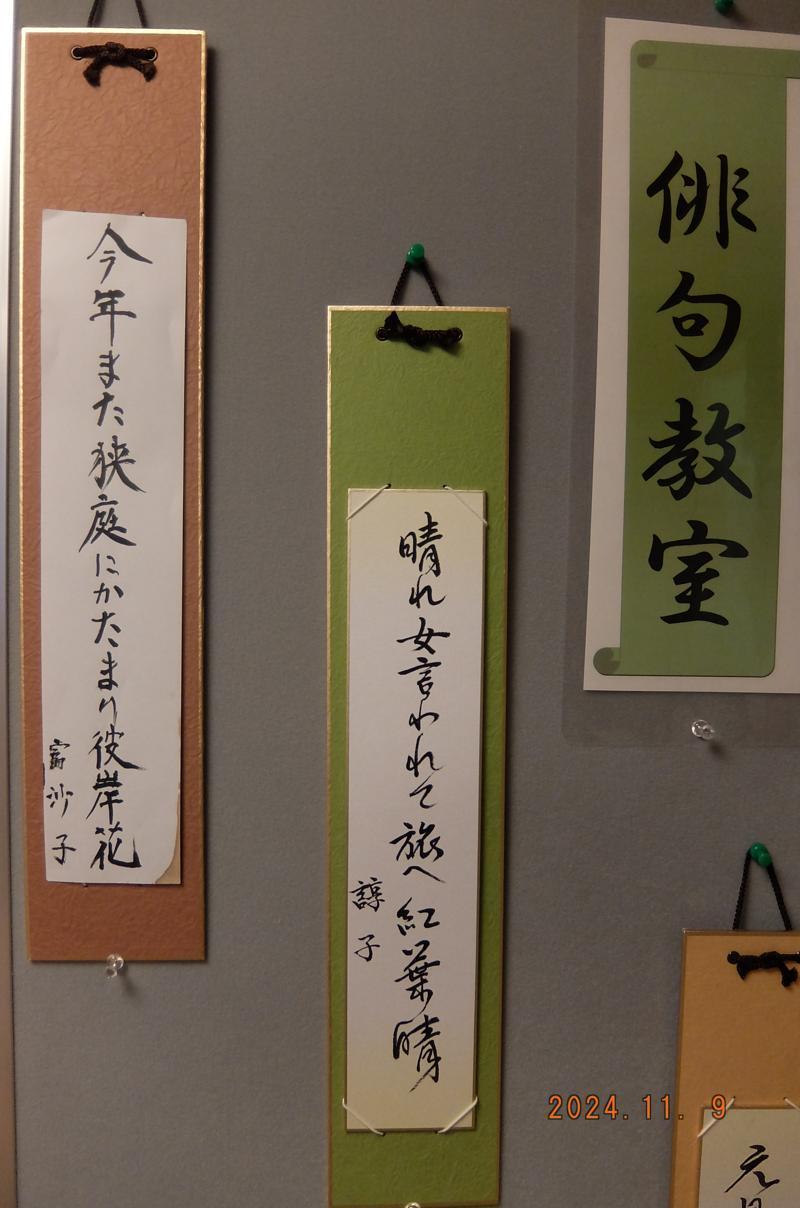 俳句教室
晴れ女言われて旅へ紅葉晴
諄子
今年また狭庭にかたまり彼岸花
富沙子
元
2024.11. 9